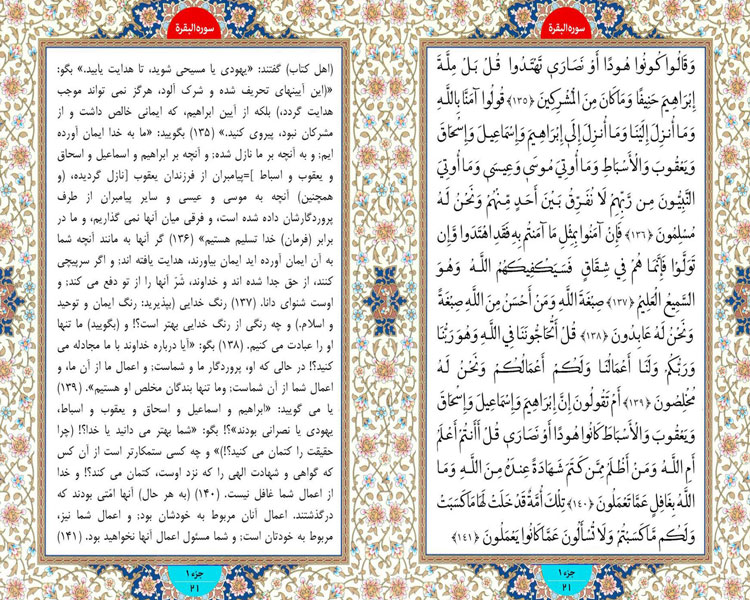 سوره البقرة
وَقَالُوا كُونُوا هُودًا أَوْ نَصَارَى تَهْتَدُوا قُلْ بَلْ مِلَّةَ
إِبْرَاهِيمَ حَنِيفًا وَمَا كَانَ مِنَ الْمُشْرِكِينَ ﴿١٣٥﴾ قُولُوا آمَنَّا بِاللَّهِ
وَمَا أُنْزِلَ إِلَيْنَا وَمَا أُنْزِلَ إِلَى إِبْرَاهِيمَ وَإِسْمَاعِيلَ وَإِسْحَاقَ
وَيَعْقُوبَ وَالْأَسْبَاطِ وَمَا أُوتِيَ مُوسَى وَعِيسَى وَمَا أُوتِيَ
النَّبِيُّونَ مِنْ رَبِّهِمْ لَا نُفَرِّقُ بَيْنَ أَحَدٍ مِنْهُمْ وَنَحْنُ لَهُ
مُسْلِمُونَ ﴿١٣٦﴾ فَإِنْ آمَنُوا بِمِثْلِ مَا آمَنْتُمْ بِهِ فَقَدِ اهْتَدَوْا وَإِنْ
تَوَلَّوْا فَإِنَّمَا هُمْ فِي شِقَاقٍ فَسَيَكْفِيكَهُمُ اللَّهُ وَهُوَ
السَّمِيعُ الْعَلِيمُ ﴿١٣٧﴾ صِبْغَةَ اللَّهِ وَمَنْ أَحْسَنُ مِنَ اللَّهِ صِبْغَةً
وَنَحْنُ لَهُ عَابِدُونَ ﴿١٣٨﴾ قُلْ أَتُحَاجُّونَنَا فِي اللَّهِ وَهُوَ رَبُّنَا
وَرَبُّكُمْ وَلَنَا أَعْمَالُنَا وَلَكُمْ أَعْمَالُكُمْ وَنَحْنُ لَهُ
مُخْلِصُونَ ﴿١٣٩﴾ أَمْ تَقُولُونَ إِنَّ إِبْرَاهِيمَ وَإِسْمَاعِيلَ وَإِسْحَاقَ
وَيَعْقُوبَ وَالْأَسْبَاطَ كَانُوا هُودًا أَوْ نَصَارَى قُلْ أَأَنْتُمْ أَعْلَمُ
أَمِ اللَّهُ وَمَنْ أَظْلَمُ مِمَّنْ كَتَمَ شَهَادَةً عِنْدَهُ مِنَ اللَّهِ وَمَا
اللَّهُ بِغَافِلٍ عَمَّا تَعْمَلُونَ ﴿١٤٠﴾ تِلْكَ أُمَّةٌ قَدْ خَلَتْ لَهَا مَا كَسَبَتْ
وَلَكُمْ مَا كَسَبْتُمْ وَلَا تُسْأَلُونَ عَمَّا كَانُوا يَعْمَلُونَ ﴿١٤١﴾
جزء ١
٢١
سوره البقرة
(اهل کتاب) گفتند: «یهودی یا مسیحی شوید، تا هدایت یابید.» بگو:
«(این آیینهای تحریف شده و شرک آلود، هرگز نمی تواند موجب
هدایت گردد،) بلکه از آیین ابراهیم، که ایمانی خالص داشت و از
مشرکان نبود، پیروی کنید.» (۱۳۵) بگویید: «ما به خدا ایمان آورده
ایم; و به آنچه بر ما نازل شده; و آنچه بر ابراهیم و اسماعیل و اسحاق
و یعقوب و اسباط ]=پیامبران از فرزندان یعقوب [نازل گردیده، (و
همچنین) آنچه به موسی و عیسی و سایر پیامبران از طرف
پروردگارشان داده شده است، و فرقی میان آنها نمی گذاریم، و ما در
برابر (فرمان) خدا تسلیم هستیم» (۱۳۶) گر آنها به مانند آنچه شما
به آن ایمان آورده اید ایمان بیاورند، هدایت یافته اند; و اگر سرپیچی
کنند، از حق جدا شده اند و خداوند، شرّ آنها را از تو دفع می کند; و
اوست شنوای دانا. (۱۳۷) رنگ خدایی (بپذیرید: رنگ ایمان و توحید
و اسلام.) و چه رنگی از رنگ خدایی بهتر است؟! و (بگویید) ما تنها
او را عبادت می کنیم. (۱۳۸) بگو: «آیا درباره خداوند با ما مجادله می
کنید؟! در حالی که او، پروردگار ما و شماست; و اعمال ما از آن ما، و
اعمال شما از آن شماست; وما تنها بندگان مخلص او هستیم». (۱۳۹)
یا می گویید: «ابراهیم و اسماعیل و اسحاق و یعقوب و اسباط،
یهودی یا نصرانی بودند»؟! بگو: «شما بهتر می دانید یا خدا؟! (چرا
حقیقت را کتمان می کنید؟!)» و چه کسی ستمکارتر است از آن کس
که گواهی و شهادت الهی را که نزد اوست، کتمان می کند؟! و خدا
از اعمال شما غافل نیست. (۱۴۰) (به هر حال) آنها امّتی بودند که
درگذشتند. اعمال آنان مربوط به خودشان بود; و اعمال شما نیز،
مربوط به خودتان است; و شما مسئول اعمال آنها نخواهید بود. (۱۴۱)
جزء ١
٢١